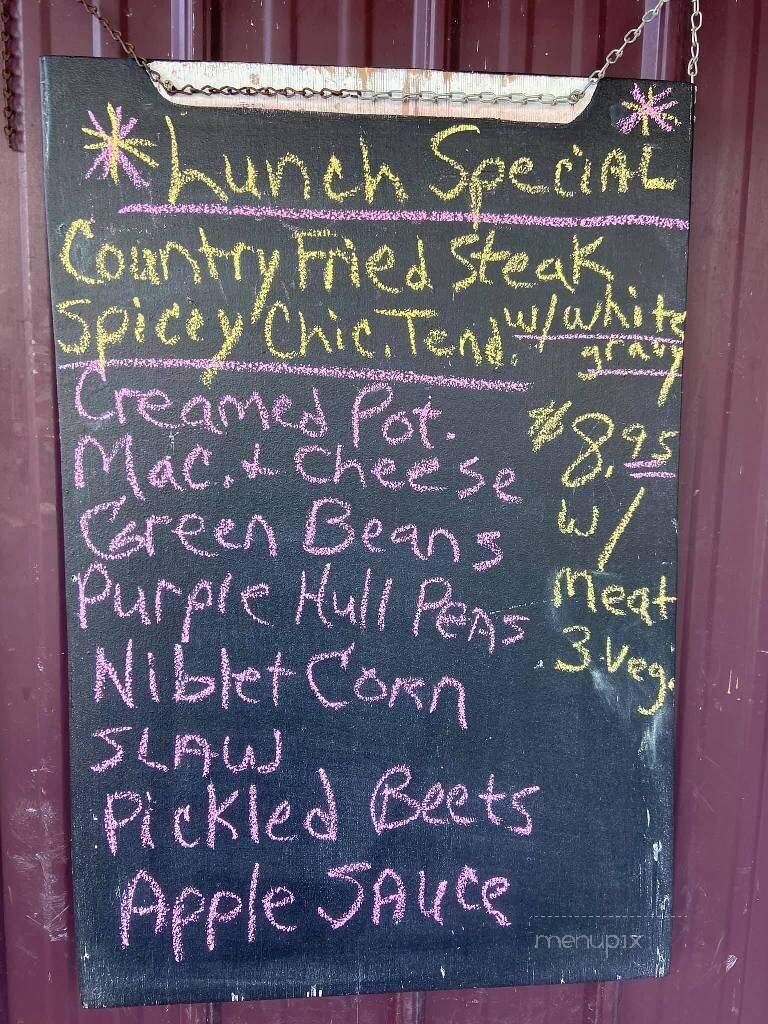 * Lunch Special *
Country Fried Steak
Spicey Chic. Tend. w/white
gravy
Creamed Pot.
Mac. & Cheese
Green Beans
Purple Hull Peas
Niblet Corn
SLAW
Pickled Beets
Apple Sauce
$8.95
w/
meat
3 Veg.
menupix